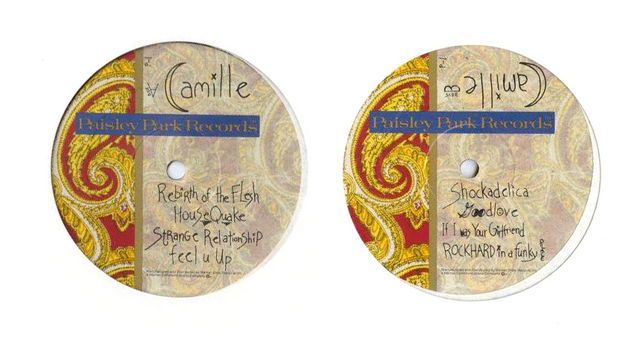 Camille
Paisley Park Records
Rebirth of the Flesh
HouseQuake
Strange Relationship
feel u Up
SIDE B
Camille
Paisley Park Records
Shockadelica
Goodlove
If I Was Your Girlfriend
ROCKHARD in a funky